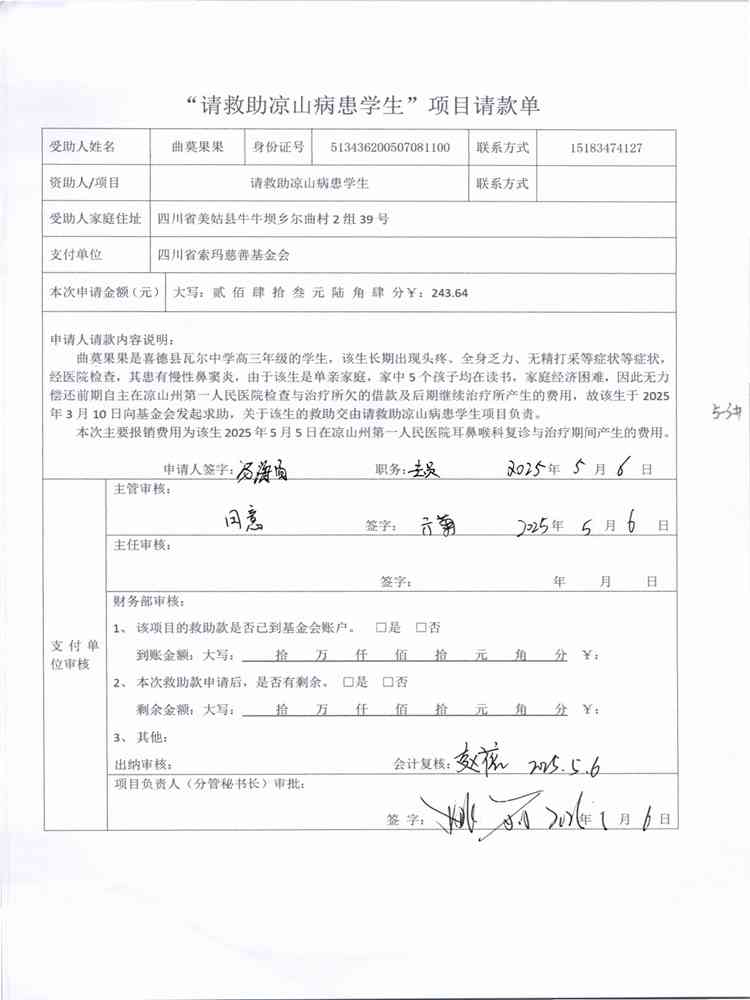 “请救助凉山病患学生”项目请款单
受助人姓名 曲莫果果 身份证号 513436200507081100 联系方式 15183474127
资助人/项目 请救助凉山病患学生 联系方式
受助人家庭住址 四川省美姑县牛牛坝乡尔曲村 2 组 39 号
支付单位 四川省索玛慈善基金会
本次申请金额（元） 大写：贰 佰 肆 拾 叁 元 陆 角 肆 分￥：243.64
申请人请款内容说明：
曲莫果果是喜德县瓦尔中学高三年级的学生，该生长期出现头疼、全身乏力、无精打采等症状等症状，
经医院检查，其患有慢性鼻窦炎，由于该生是单亲家庭，家中 5 个孩子均在读书，家庭经济困难，因此无力
偿还前期自主在凉山州第一人民医院检查与治疗所欠的借款及后期继续治疗所产生的费用，故该生于 2025
年 3 月 10 日向基金会发起求助，关于该生的救助交由请救助凉山病患学生项目负责。
本次主要报销费用为该生 2025 年 5 月 5 日在凉山州第一人民医院耳鼻喉科复诊与治疗期间产生的费用。
申请人签字： 职务： 2025 年 5 月 6 日
支付单位审核
主管审核：
同意 签字： 2025 年 5 月 6 日
主任审核：
签字： 年 月 日
财务部审核：
1、 该项目的救助款是否已到基金会账户。 □是 □否
到账金额：大写： 拾 万 仟 佰 拾 元 角 分 ￥：
2、 本次救助款申请后，是否有剩余。 □是 □否
剩余金额：大写： 拾 万 仟 佰 拾 元 角 分 ￥：
3、 其他：
出纳审核： 会计复核： 2025.5.6
项目负责人（分管秘书长）审批：
签 字： 年 月 6 日